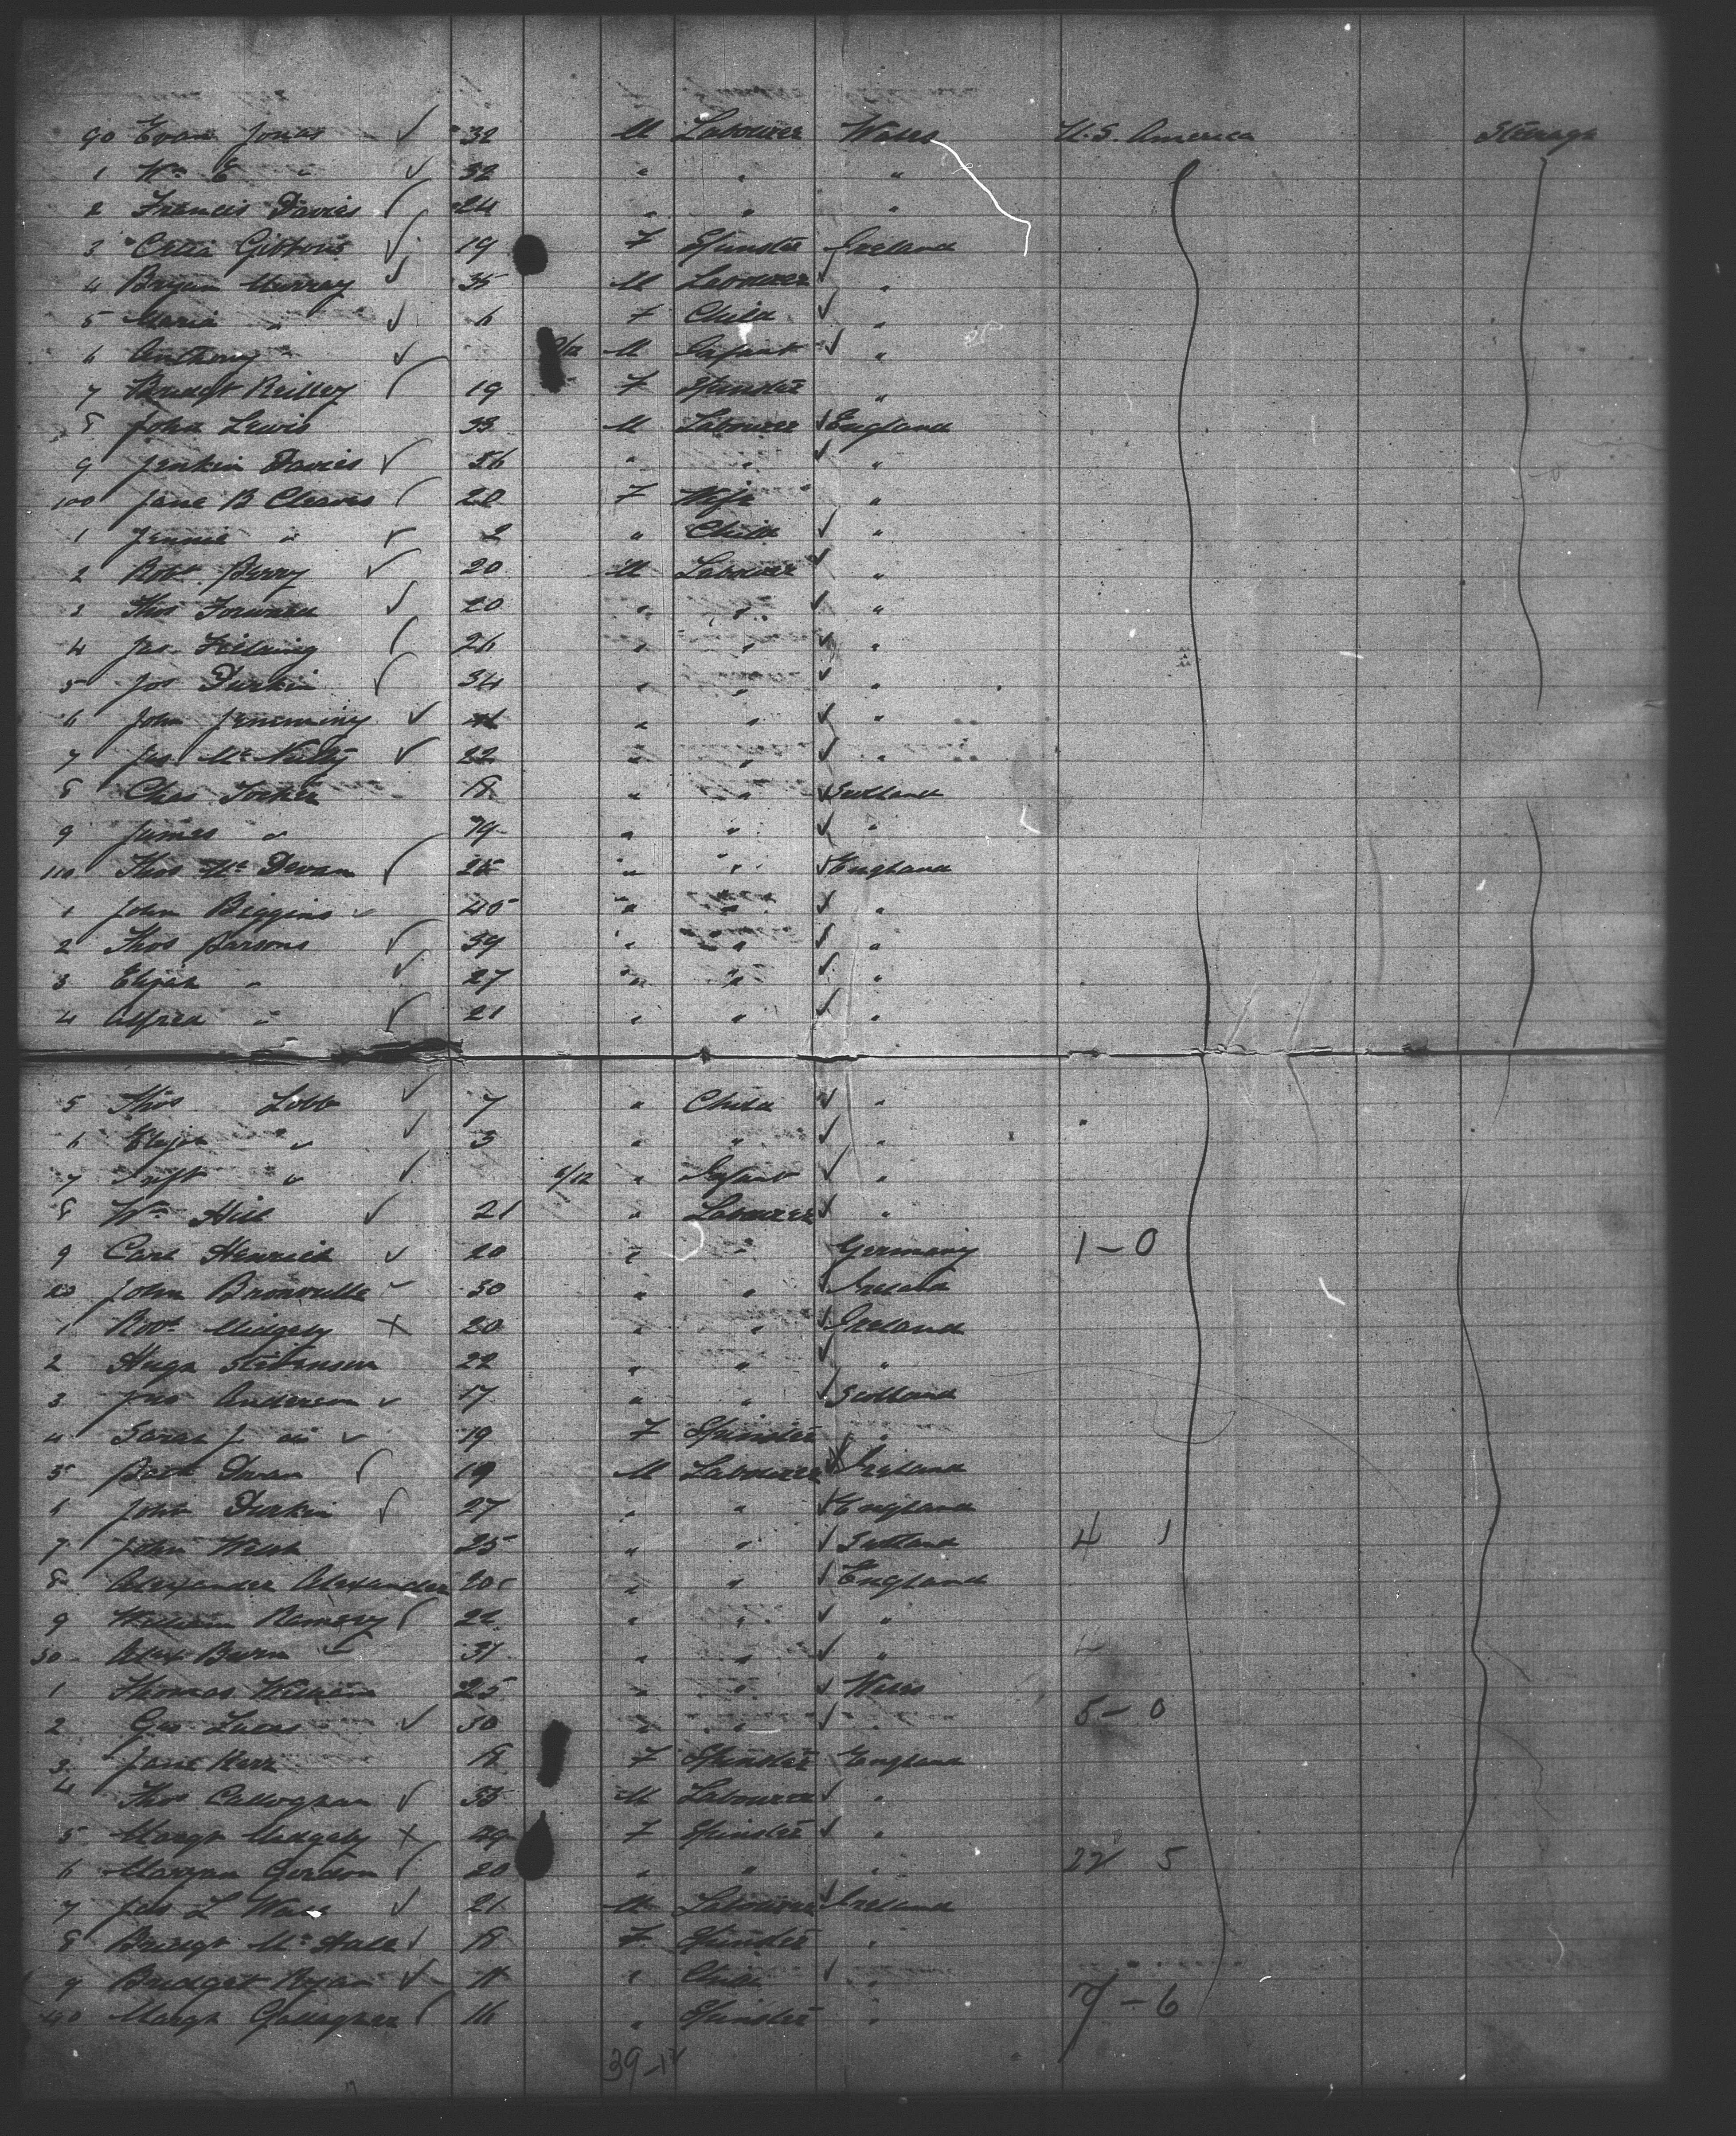 90 Evan Jonas 32 M Labourer Wales U.S. America Steerage
1 Wm E " 32 " " "
2 Francis Davies 24 " " "
3 Celia Gibbons 19 F Spinster Ireland
4 Bryan Murray 35 M Labourer "
5 Maria " 6 F Child "
6 Anthony " /12 M Infant "
7 Bridgt Reilley 19 F Spinster "
8 John Lewis 33 M Labourer England
9 Jenkin Davies 56 " " "
100 Jane B Cleaves 20 F Wife "
1 Jennie " 2 " Child "
2 Robt Berry 20 M Labourer "
3 Thos Forward 20 " " "
4 Jas 26 " " "
5 Jos Durkin 34 " " "
6 John " " "
7 Jas McNulty 22 " " "
8 Chas 18 " " Scotland
9 James " 19 " " "
110 Thos Mc Devan 25 " " England
1 John Biggins 45 " " "
2 Thos Parsons 39 " " "
3 Elijah " 27 " " "
4 Alfred " 21 " " "
5 Thos Lobb 7 " Child "
6 " 3 " " "
7 Inft " /12 " Infant "
8 Wm Hill 21 " Labourer "
9 Carl Henrich 20 " " Germany 1-0
20 John 30 " " Ireland
1 Robt Midgely 20 " " Ireland
2 Hugh Stevenson 22 " " "
3 Jas Anderson 17 " " Scotland
4 Sarah J 19 F Spinster "
5 Patk 19 M Labourer Ireland
6 John Durkin 27 " " England
7 John Welsh 25 " " Scotland 4 1
8 Alexander Alexander 20 " " England
9 William Ramsey 22 " " "
30 Alex Burn 31 " " "
1 Thomas William 25 " " Wales
2 Geo Lucas 30 " " " 5-0
3 Jane Kerr 18 F Spinster England
4 Thos Callaghan 35 M Labourer "
5 Margt Midgely F Spinster "
6 Maryan Gordon 20 " " " 22 5
7 Jas L 21 M Labourer Ireland
8 Bridgt McHale 18 F Spinster "
9 Bridget Ryan 11 " Child "
40 Margt Gallagher 16 " Spinster " 7-6
39-12